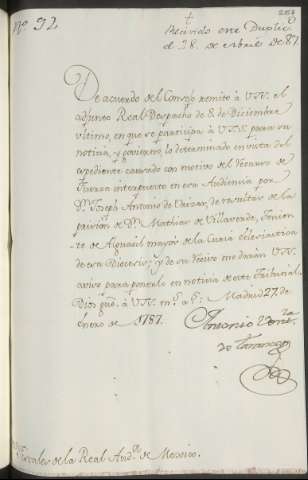 Nº 92
Recivido este Duplicdo
el 28. de Abril de 87.
De acuerdo del Consejo remito à VSS. el
adjunto Real Despacho de 8. de Diciembre
ultimo, en que se participa à VSS. para su
noticia, y govierno, lo determinado en vista del
expediente causado con motivo del Recurso de
fuerza interpuesto en esa Audiencia por
Dn. Joseph Antonio de de resultas de la
prision de Dn. Mathias de Villaverde, Tenien
te de Alguacil mayor de la Curia eclesiastica
de esa Diocesis; y de su recivo me daràn VSS.
aviso para ponerlo en noticia de este Tribunal.
Dios gue. à VSS. ms. as. Madrid 27. de
Enero de 1787.
Antonio Ventra
de Taranco
de la Real Auda. de Mexico.